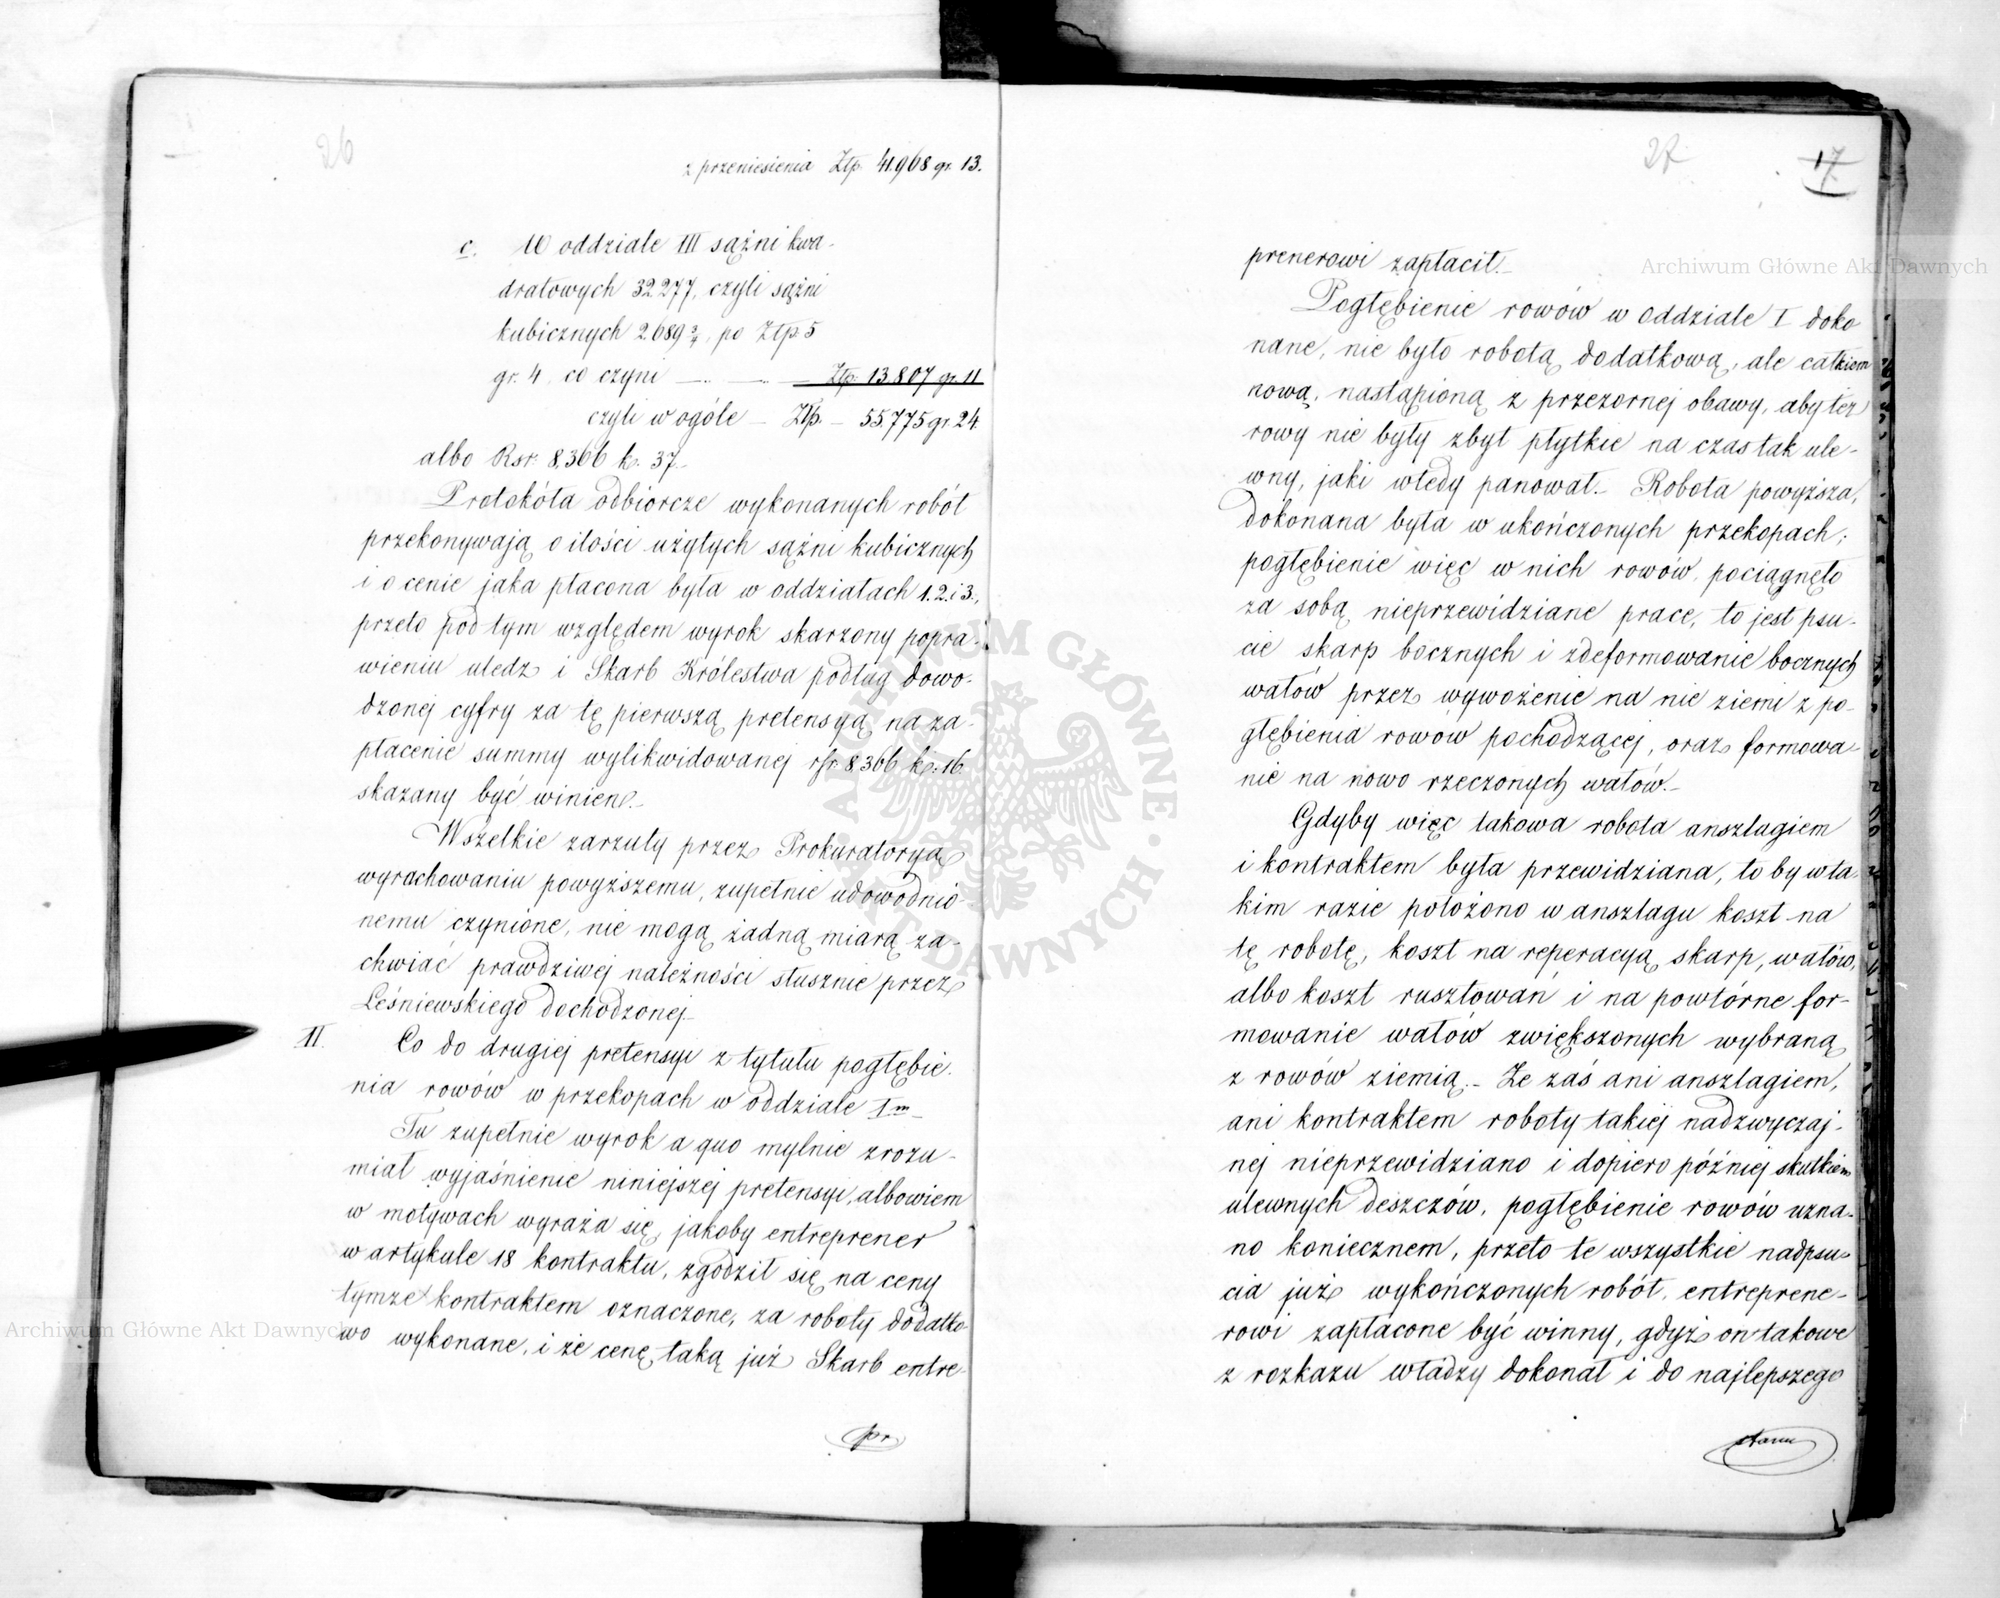 26
z przeniesienia Złp. 41.968 gr. 13.
c. W oddziale III sążni kwa-
dratowych 32.277, czyli sążni
kubicznych 2689 3/4, po Złp. 5
gr. 4, co czyni — — Złp. 13.807 gr. 11
czyli w ogóle — Złp. — 55.775 gr. 24.
albo Rsr. 8,366 k. 37.
Protokóła odbiorcze wykonanych robót
przekonywają o ilości użytych sążni kubicznych
i o cenie jaka płacona była w oddziałach 1. 2. i 3.,
przeto pod tym względem wyrok skarżony popra-
wieniu uledz i Skarb Królestwa podług dowo-
dzonej cyfry za tę pierwszą pretensyą na za-
płacenie summy wylikwidowanej rsr. 8366 kp. 16.
skazany być winien.—
Wszelkie zarzuty przez Prokuratoryą
wyrachowaniu powyższemu, zupełnie udowodnio-
nemu czynione, nie mogą żadną miarą za-
chwiać prawdziwej należności słusznie przez
Leśniewskiego dochodzonej.—
II. Co do drugiej pretensyi z tytułu pogłębie-
nia rowów w przekopach w oddziale I-m
Tu zupełnie wyrok a quo mylnie zrozu-
miał wyjaśnienie niniejszej pretensyi, albowiem
w motywach wyraża się, jakoby entreprener
w artykule 18 kontraktu, zgodził się na ceny
tymże kontraktem oznaczone, za roboty dodatko-
wo wykonane, i że cenę taką już Skarb entre-
pr.
27
17
prenerowi zapłacił.—
Pogłębienie rowów w oddziale I doko
nane, nie było robotą dodatkową, ale całkiem
nową, nastąpioną z przezornej obawy, aby też
rowy nie były zbyt płytkie na czas tak ule-
wny, jaki wtedy panował.— Robota powyższa,
dokonana była w ukończonych przekopach;
pogłębienie więc w nich rowów, pociągnęło
za sobą nieprzewidziane prace, to jest psu-
cie skarp bocznych i zdeformowanie bocznych
wałów przez wywożenie na nie ziemi z po-
głębienia rowów pochodzącej, oraz formowa-
nie na nowo rzeczonych wałów.—
Gdyby więc takowa robota anszlagiem
i kontraktem była przewidziana, to by w ta-
kim razie położono w anszlagu koszt na
tę robotę, koszt na reperacyą skarp, wałów,
albo koszt rusztowań i na powtórne for-
mowanie wałów zwiększonych wybraną
z rowów ziemią.— Że zaś ani anszlagiem,
ani kontraktem roboty takiej nadzwyczaj-
nej nieprzewidziano i dopiero później skutkiem
ulewnych deszczów, pogłębienie rowów uzna-
no koniecznem, przeto te wszystkie nadpsu-
cia już wykończonych robót, entreprene-
rowi zapłacone być winny, gdyż on takowe
z rozkazu władzy dokonał i do najlepszego
stanu
Archiwum Główne Akt Dawnych
Archiwum Główne Akt Dawnych
ARCHIWUM GŁÓWNE AKT DAWNYCH